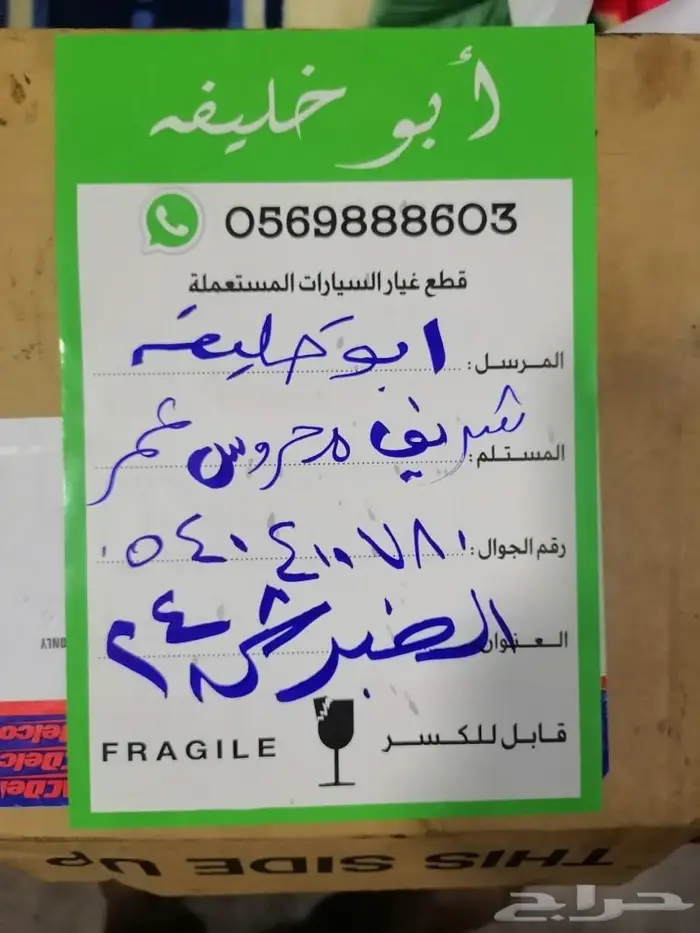 أبو خليفه
0569888603
قطع غيار السيارات المستعملة
المرسل: ابو خليفه
المستلم: شريف محروس عمر
رقم الجوال: ٠٥٤٠٤١٠٠٧٨١
العنوان: الخبر ش
قابل للكسر FRAGILE
ONLY
ACDelco
THIS SIDE UP
حراج